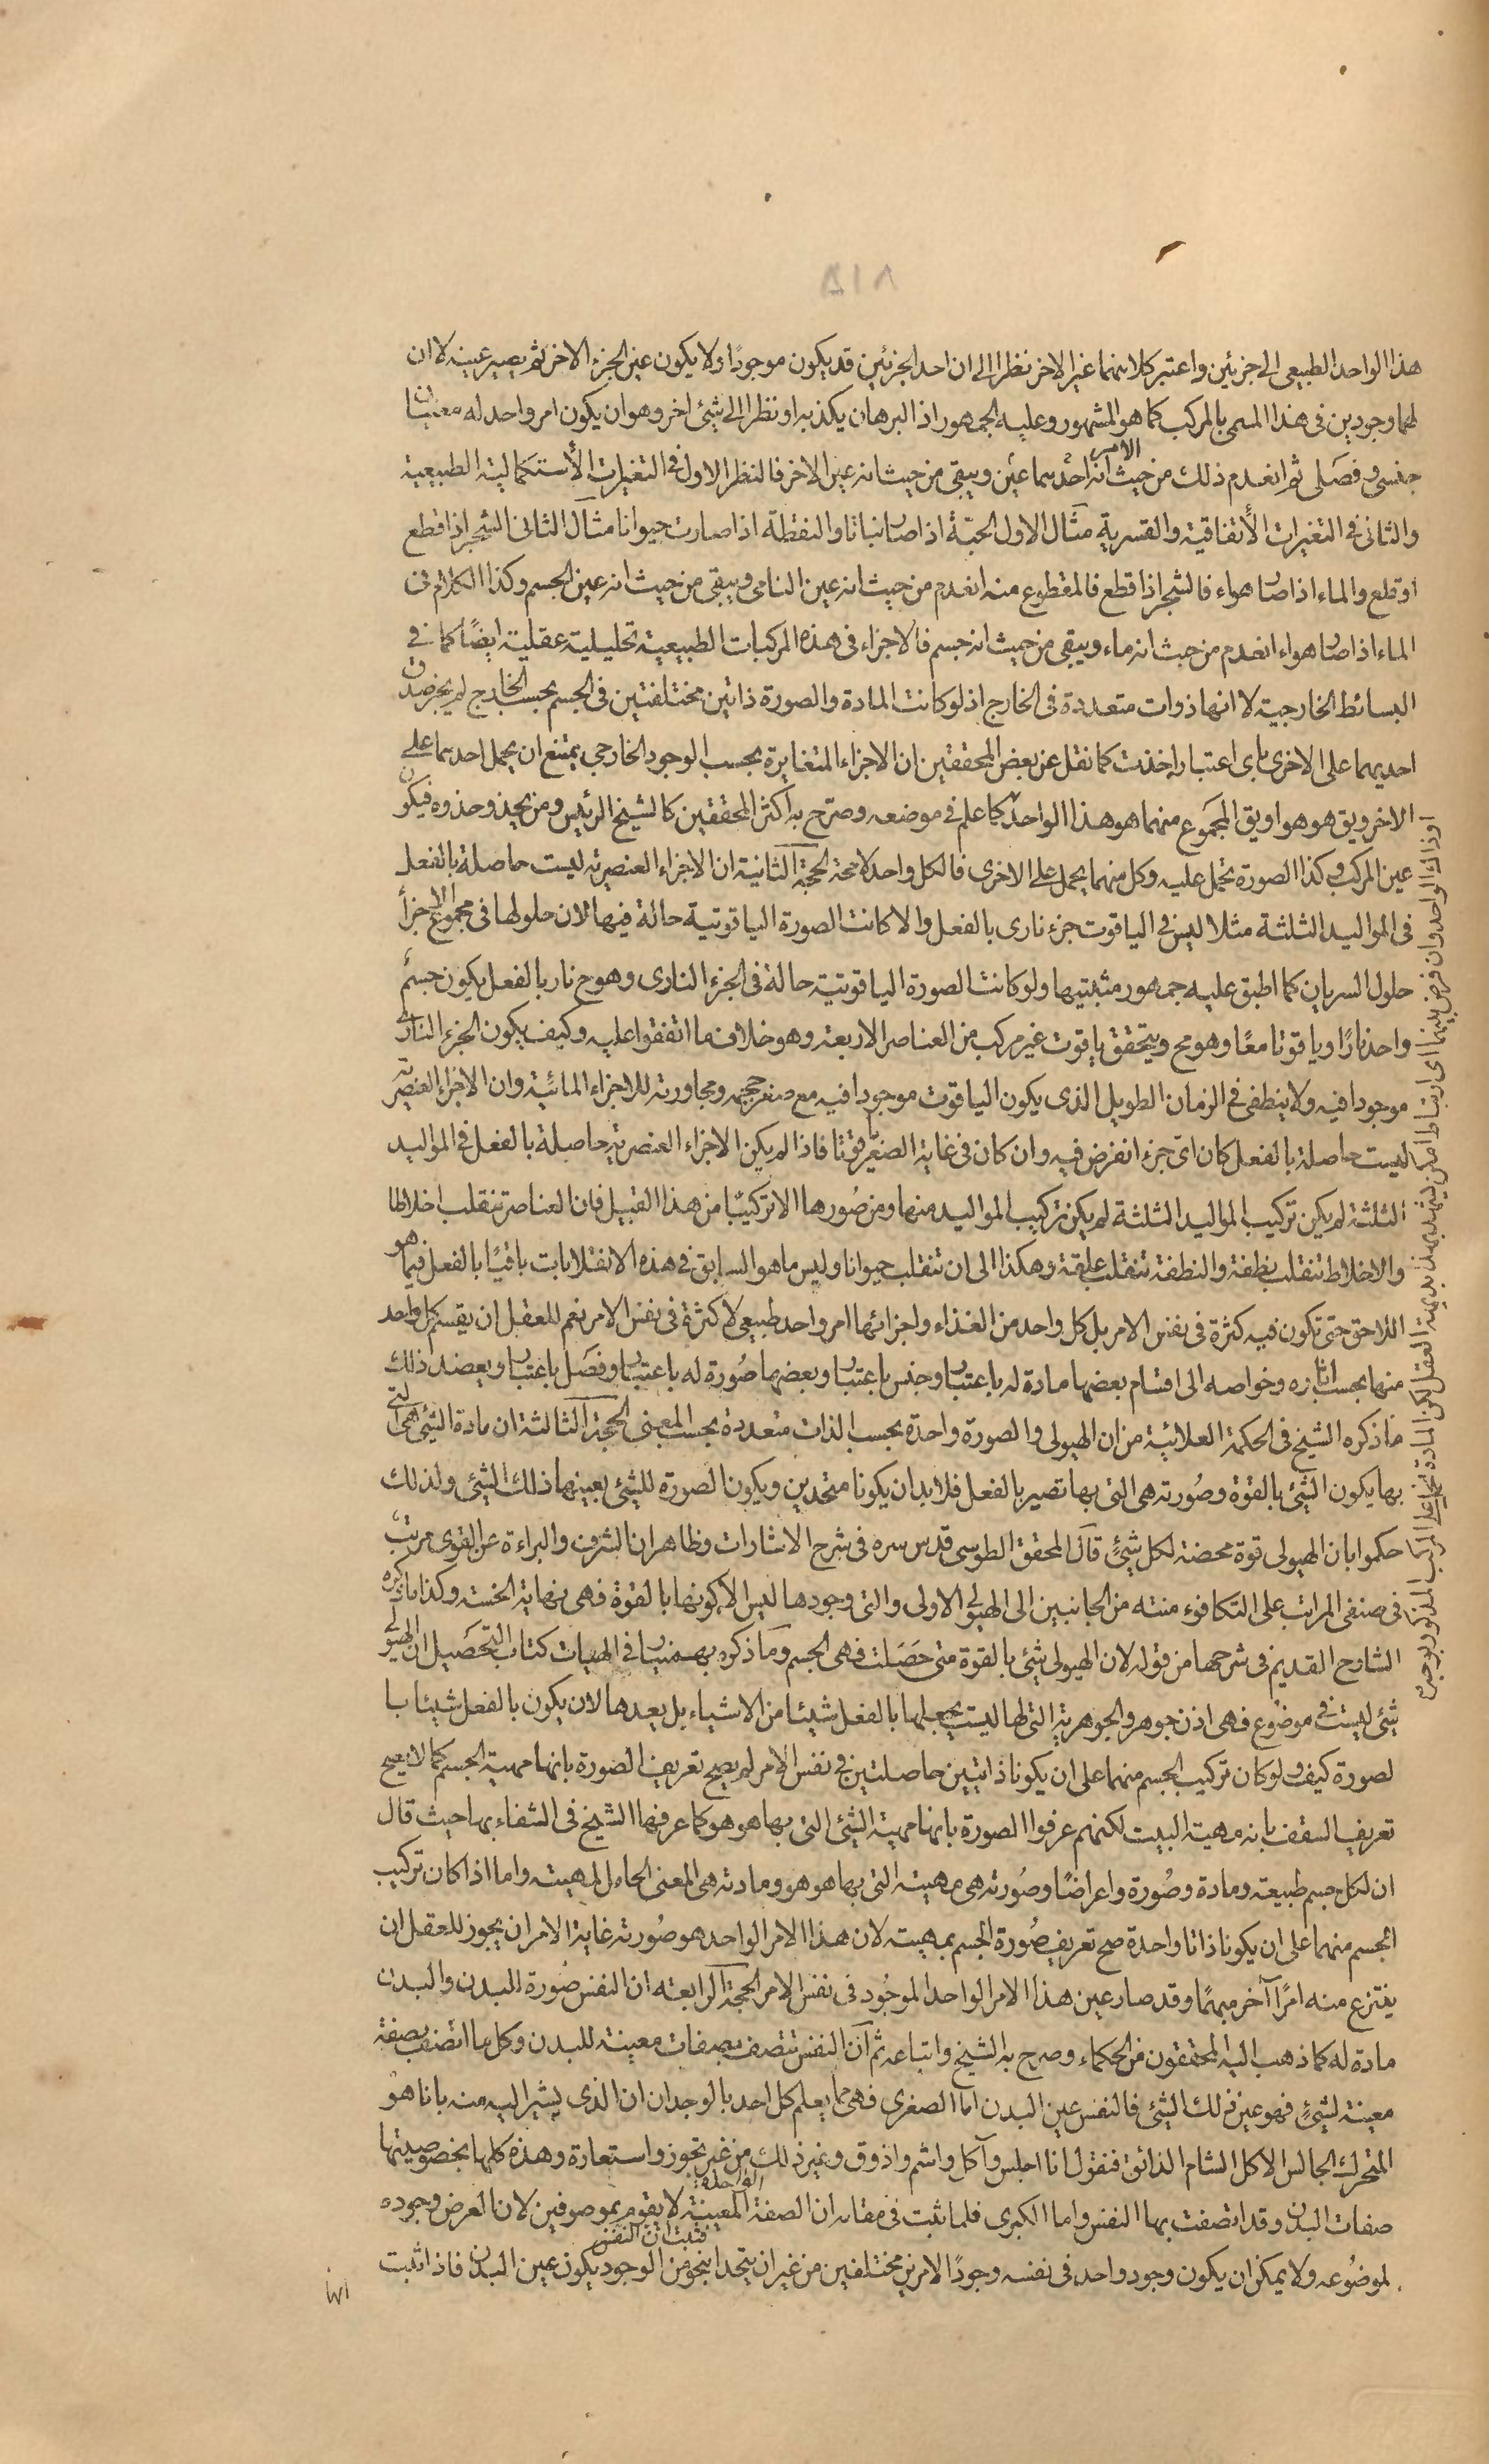 ٥١٨
هذا الواحد الطبيعى الى جزئين واعتبر كلا منهما غير الاخر نظرا الى ان احد الجزئين قد يكون موجودًا ولا يكون عين الجزء الاخر ثم يصير عينه لا ان
لهما وجودين فى هذا المسمى بالمركب كما هو المشهور وعليه الجمهور اذ البرهان يكذبه او نظرا الى شئ اخر وهو ان يكون امر واحد له معنيان
جنسى وفصلى ثم انعدم ذلك الامر من حيث انه احدهما عين ويبقى من حيث انه عين الاخر فالنظر الاول فى التغيرات الأستكمالية الطبيعية
والثانى فى التغيرات الأتفاقية والقسرية مثال الاول الحبّة اذا صار نباتا والنطفة اذا صارت حيوانا مثال الثانى الشجر اذا قطع
او قلع والماء اذا صار هواء فالشجر اذا قطع فالمقطوع منه انعدم من حيث انه عين النامى ويبقى من حيث انه عين الجسم وكذا الكلام فى
الماء اذا صار هواء انعدم من حيث انه ماء ويبقى من حيث انه جسم فالاجزاء فى هذه المركبات الطبيعية تحليلية عقلية ايضًا كما فى
البسائط الخارجية لا انها ذوات متعددة فى الخارج اذ لو كانت المادة والصورة ذاتين مختلفتين فى الجسم بحسب الخارج لم يجز صدق
احديهما على الاخرى باى اعتبار اخذت كما نقل عن بعض المحققين ان الاجزاء المتغايرة بحسب الوجود الخارجى يمتنع ان يحمل احدهما على
الاخر ويق هو هو او يق المجموع منهما هو هذا الواحد كما علم فى موضعه وصرّح به اكثر المحققين كالشيخ الرئيس ومن يحذو حذوه فيكون
عين المركب وكذا الصورة تحمل عليه وكل منهما يحمل على الاخرى فالكل واحد لا محة الحجة الثانية ان الاجزاء العنصرية ليست حاصلة بالفعل
فى المواليد الثلثة مثلا ليس فى الياقوت جزء نارى بالفعل والا كانت الصورة الياقوتية حالة فيها لان حلولها فى مجموع الاجزأ
حلول السريان كما اطبق عليه جمهور مثبتيها ولو كانت الصورة الياقوتية حالة فى الجزء النارى وهو ح نار بالفعل يكون جسم
واحد نارًا وياقوتا معًا وهو مح ويتحقق ياقوت غير مركب من العناصر الاربعة وهو خلاف ما اتفقوا عليه وكيف يكون الجزء النارى
موجودا فيه ولا ينطفى فى الزمان الطويل الذى يكون الياقوت موجودا فيه مع صغر حجمه ومجاورته للاجزاء المائية وان الاجزاء العنصرية
ليست حاصلة بالفعل كان اىّ جزء انفرض فيه وان كان فى غاية الصغر ياقوتا فاذا لم يكن الاجزاء العنصرية حاصلة بالفعل فى المواليد
الثلثة لم يكن تركيب المواليد الثلثة لم يكن تركيب المواليد منها ومن صُورها الا تركيبًا من هذا القبيل فان العناصر تنقلب اخلاطا
والاخلاط تنقلب نطفة والنطفة تنقلب علقة وهكذا الى ان تنقلب حيوانا وليس ما هو السابق فى هذه الانقلابات باقيًا بالفعل فيما هو
اللاحق حتى تكون فيه كثرة فى نفس الامر بل كل واحد من الغذاء واجزائها امر واحد طبيعى لا كثرة فى نفس الامر نعم للعقل ان يقسم كل واحد
منها بحسب اثاره وخواصه الى اقسام بعضها مادة له باعتبار وجنس باعتبار وبعضها صُورة له باعتبار وفصل باعتبار ويعضد ذلك
ما ذكره الشيخ فى الحكمة العلائية من ان الهيولى والصورة واحدة بحسب الذات متعددة بحسب المعنى الحجة الثالثة ان مادة الشئ هى التى
بها يكون الشئ بالقوة وصُورته هى التى بها تصير بالفعل فلا بد ان يكونا متحدين ويكون الصورة للشئ بعينها ذلك الشئ ولذلك
حكموا بان الهيولى قوة محضة لكل شئٍ قال المحقق الطوسى قدس سره فى شرح الاشارات وظاهر ان الشرف والبراءة عن القوى مرتبة
فى صنفى المراتب على التكافوء منته من الجانبين الى الهيولى الاولى والتى وجودها ليس الا كونها بالقوة فهى نهاية الخسة وكذا ما ذكره
الشارح القديم فى شرحها من قوله لان الهيولى شئ بالقوة متى حَصَلت فهى الجسم وما ذكره بهمنيار فى الهيات كتاب التحصيل ان الهيولى
شئ ليست فى موضوع فهى اذن جوهر والجوهرية التى لها ليست يجعلها بالفعل شيئا من الاشياء بل يعدها لان يكون بالفعل شيئا با
لصورة كيف ولو كان تركيب الجسم منهما على ان يكونا ذاتيين حاصلتين فى نفس الامر لم يصح تعريف الصورة بانها مهية الجسم كما لا يصح
تعريف السقف بانه مهية البيت لكنهم عرفوا الصورة بانها مهية الشئ التى بها هو هو كما عرفها الشيخ فى الشفاء بها حيث قال
ان لكل جسم طبيعة ومادة وصُورة واعراضًا وصُورته هى مهيته التى بها هو هو ومادته هى المعنى الحامل لمهيته واما اذا كان تركيب
الجسم منهما على ان يكونا ذاتا واحدة صح تعريف صُورة الجسم بمهيته لان هذا الامر الواحد هو صُورته غاية الامر ان يجوز للعقل ان
ينتزع منه امرًا آخر مبهمًا وقد صار عين هذا الامر الواحد الموجُود فى نفس الامر الحجة الرابعة ان النفس صُورة البدن والبدن
مادة له كما ذهب اليه المحققون من الحكماء وصرح به الشيخ واتباعه ثم آن النفس تتصف بصفات معينة للبدن وكل ما اتصف بصفة
معينة لشئٍ فهو عين ذلك الشئ فالنفس عين البدن اما الصغرى فهى مما يعلم كل احد بالوجدان ان الذى يشير اليه منه بانا هو
المتحرك الجالس الاكل الشام الذائق فنقول انا اجلس وآكل واشم واذوق وغير ذلك من غير تجوز واستعارة وهذه كلها بخصوصيتها
صفات البدن وقد اتصفت بها النفس واما الكبرى فلما ثبت فى مقامه ان الصفة الواحدة المعينة لا يقوم بموصوفين لان العرض وجوده
لموضُوعه ولا يمكن ان يكون وجود واحد فى نفسه وجودًا لامرين مختلفين من غير ان يتحدا بنحو من الوجود فثبت ان النفس يكون عين البدن فاذا ثبت
او ذلك الواحد وان فرض بينهما اى ارتباط امكن يشهد بهذا بديهة العقل لكن المادة تحمل على المركب المذكور بوجه
انها